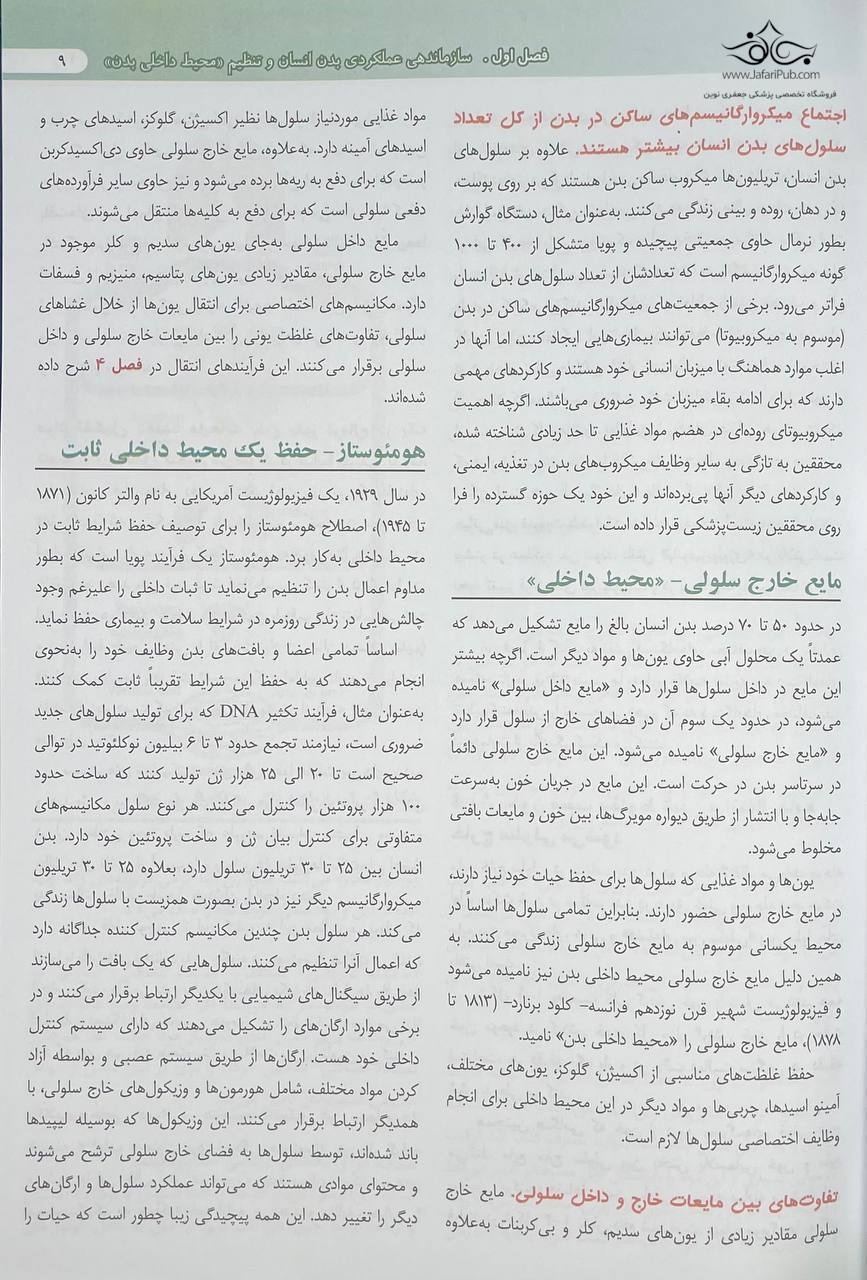 فصل اول . سازماندهی عملکردی بدن انسان و تنظیم «محیط داخلی بدن»
۹
www.JafariPub.com
فروشگاه تخصصی پزشکی جعفری نوین
اجتماع میکروارگانیسم‌های ساکن در بدن از کل تعداد
سلول‌های بدن انسان بیشتر هستند. علاوه بر سلول‌های
بدن انسان، تریلیون‌ها میکروب ساکن بدن هستند که بر روی پوست،
و در دهان، روده و بینی زندگی می‌کنند. به‌عنوان مثال، دستگاه گوارش
بطور نرمال حاوی جمعیتی پیچیده و پویا متشکل از ۴۰۰ تا ۱۰۰۰
گونه میکروارگانیسم است که تعدادشان از تعداد سلول‌های بدن انسان
فراتر می‌رود. برخی از جمعیت‌های میکروارگانیسم‌های ساکن در بدن
(موسوم به میکروبیوتا) می‌توانند بیماری‌هایی ایجاد کنند، اما آنها در
اغلب موارد هماهنگ با میزبان انسانی خود هستند و کارکردهای مهمی
دارند که برای ادامه بقاء میزبان خود ضروری می‌باشند. اگرچه اهمیت
میکروبیوتای روده‌ای در هضم مواد غذایی تا حد زیادی شناخته شده،
محققین به تازگی به سایر وظایف میکروب‌های بدن در تغذیه، ایمنی،
و کارکردهای دیگر آنها پی‌برده‌اند و این خود یک حوزه گسترده را فرا
روی محققین زیست‌پزشکی قرار داده است.
مایع خارج سلولی- «محیط داخلی»
در حدود ۵۰ تا ۷۰ درصد بدن انسان بالغ را مایع تشکیل می‌دهد که
عمدتاً یک محلول آبی حاوی یون‌ها و مواد دیگر است. اگرچه بیشتر
این مایع در داخل سلول‌ها قرار دارد و «مایع داخل سلولی» نامیده
می‌شود، در حدود یک سوم آن در فضاهای خارج از سلول قرار دارد
و «مایع خارج سلولی» نامیده می‌شود. این مایع خارج سلولی دائماً
در سرتاسر بدن در حرکت است. این مایع در جریان خون به‌سرعت
جابه‌جا و با انتشار از طریق دیواره مویرگ‌ها، بین خون و مایعات بافتی
مخلوط می‌شود.
یون‌ها و مواد غذایی که سلول‌ها برای حفظ حیات خود نیاز دارند،
در مایع خارج سلولی حضور دارند. بنابراین تمامی سلول‌ها اساساً در
محیط یکسانی موسوم به مایع خارج سلولی زندگی می‌کنند. به
همین دلیل مایع خارج سلولی محیط داخلی بدن نیز نامیده می‌شود
و فیزیولوژیست شهیر قرن نوزدهم فرانسه- کلود برنارد- (۱۸۱۳ تا
۱۸۷۸)، مایع خارج سلولی را «محیط داخلی بدن» نامید.
حفظ غلظت‌های مناسبی از اکسیژن، گلوکز، یون‌های مختلف،
آمینو اسیدها، چربی‌ها و مواد دیگر در این محیط داخلی برای انجام
وظایف اختصاصی سلول‌ها لازم است.
تفاوت‌های بین مایعات خارج و داخل سلولی. مایع خارج
سلولی مقادیر زیادی از یون‌های سدیم، کلر و بی‌کربنات به‌علاوه
مواد غذایی موردنیاز سلول‌ها نظیر اکسیژن، گلوکز، اسیدهای چرب و
اسیدهای آمینه دارد. به‌علاوه، مایع خارج سلولی حاوی دی‌اکسیدکربن
است که برای دفع به ریه‌ها برده می‌شود و نیز حاوی سایر فرآورده‌های
دفعی سلولی است که برای دفع به کلیه‌ها منتقل می‌شوند.
مایع داخل سلولی به‌جای یون‌های سدیم و کلر موجود در
مایع خارج سلولی، مقادیر زیادی یون‌های پتاسیم، منیزیم و فسفات
دارد. مکانیسم‌های اختصاصی برای انتقال یون‌ها از خلال غشاهای
سلولی، تفاوت‌های غلظت یونی را بین مایعات خارج سلولی و داخل
سلولی برقرار می‌کنند. این فرآیندهای انتقال در فصل ۴ شرح داده
شده‌اند.
هومئوستاز- حفظ یک محیط داخلی ثابت
در سال ۱۹۲۹، یک فیزیولوژیست آمریکایی به نام والتر کانون (۱۸۷۱
تا ۱۹۴۵)، اصطلاح هومئوستاز را برای توصیف حفظ شرایط ثابت در
محیط داخلی به‌کار برد. هومئوستاز یک فرآیند پویا است که بطور
مداوم اعمال بدن را تنظیم می‌نماید تا ثبات داخلی را علیرغم وجود
چالش‌هایی در زندگی روزمره در شرایط سلامت و بیماری حفظ نماید.
اساساً تمامی اعضا و بافت‌های بدن وظایف خود را به‌نحوی
انجام می‌دهند که به حفظ این شرایط تقریباً ثابت کمک کنند.
به‌عنوان مثال، فرآیند تکثیر DNA که برای تولید سلول‌های جدید
ضروری است، نیازمند تجمع حدود ۳ تا ۶ بیلیون نوکلئوتید در توالی
صحیح است تا ۲۰ الی ۲۵ هزار ژن تولید کنند که ساخت حدود
۱۰۰ هزار پروتئین را کنترل می‌کنند. هر نوع سلول مکانیسم‌های
متفاوتی برای کنترل بیان ژن و ساخت پروتئین خود دارد. بدن
انسان بین ۲۵ تا ۳۰ تریلیون سلول دارد، بعلاوه ۲۵ تا ۳۰ تریلیون
میکروارگانیسم دیگر نیز در بدن بصورت همزیست با سلول‌ها زندگی
می‌کند. هر سلول بدن چندین مکانیسم کنترل کننده جداگانه دارد
که اعمال آنرا تنظیم می‌کنند. سلول‌هایی که یک بافت را می‌سازند
از طریق سیگنال‌های شیمیایی با یکدیگر ارتباط برقرار می‌کنند و در
برخی موارد ارگان‌های را تشکیل می‌دهند که دارای سیستم کنترل
داخلی خود هست. ارگان‌ها از طریق سیستم عصبی و بواسطه آزاد
کردن مواد مختلف، شامل هورمون‌ها و وزیکول‌های خارج سلولی، با
همدیگر ارتباط برقرار می‌کنند. این وزیکول‌ها که بوسیله لیپیدها
باند شده‌اند، توسط سلول‌ها به فضای خارج سلولی ترشح می‌شوند
و محتوای موادی هستند که می‌تواند عملکرد سلول‌ها و ارگان‌های
دیگر را تغییر دهد. این همه پیچیدگی زیبا چطور است که حیات را